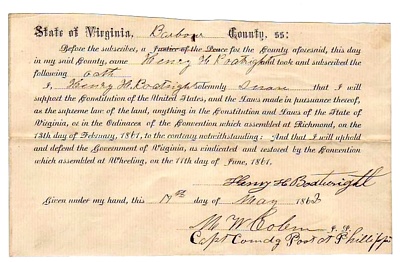 State of Virginia, Barbour County, ss:
Before the subscriber, a Justice of the Peace for the County aforesaid, this day
in my said County, came Henry H Boatright and took and subscribed the
following oath
I, Henry H. Boatright solemnly swear that I will
support the Constitution of the United States, and the Laws made in pursuance thereof,
as the supreme law of the land, anything in the Constitution and Laws of the State of
Virginia, or in the Ordinances of the Convention which assembled at Richmond, on the
13th day of February, 1861, to the contrary notwithstanding; And that I will uphold
and defend the Government of Virginia, as vindicated and restored by the Convention
which assembled at Wheeling, on the 11th day of June, 1861.
Henry H Boatwright
Given under my hand, this 17th day of May 1862
M W
Capt Comdg Post at Phillippi